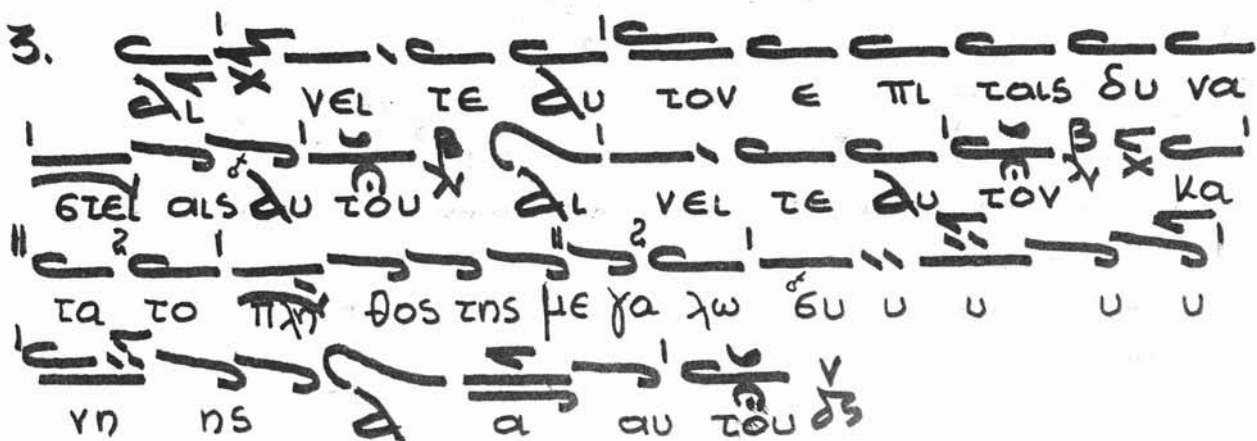 3. αι νει τε αυ τον ε πι ταις δυ να
στει αις αυ του αι νει τε αυ τον κα
τα το πλη θος της με γα λω συ υ υ υ υ
νη ης α α αυ του